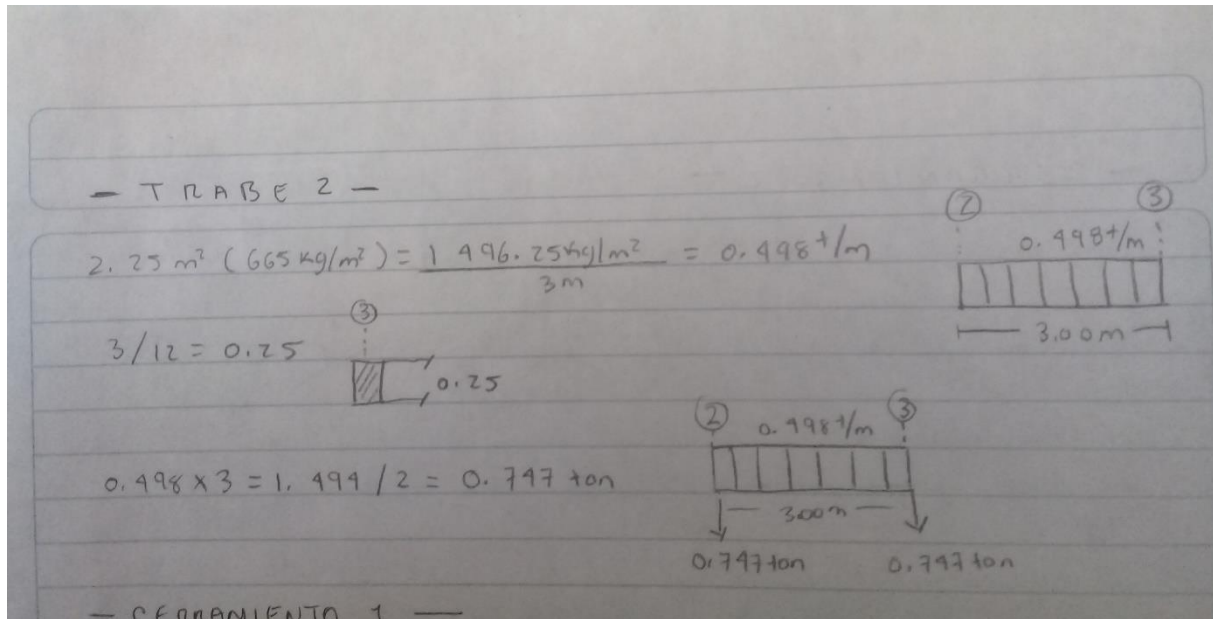 - TRABE 2 -
2.25 m² (665 kg/m²) = 1 496.25 kg/m² / 3m = 0.498 t/m
② ③
0.498 t/m
3.00m
3/12 = 0.25
③
0.25
② ③
0.498 t/m
0.498 x 3 = 1.494 / 2 = 0.747 ton
3.00m
0.747 ton 0.747 ton
- CERRAMIENTO 1 -